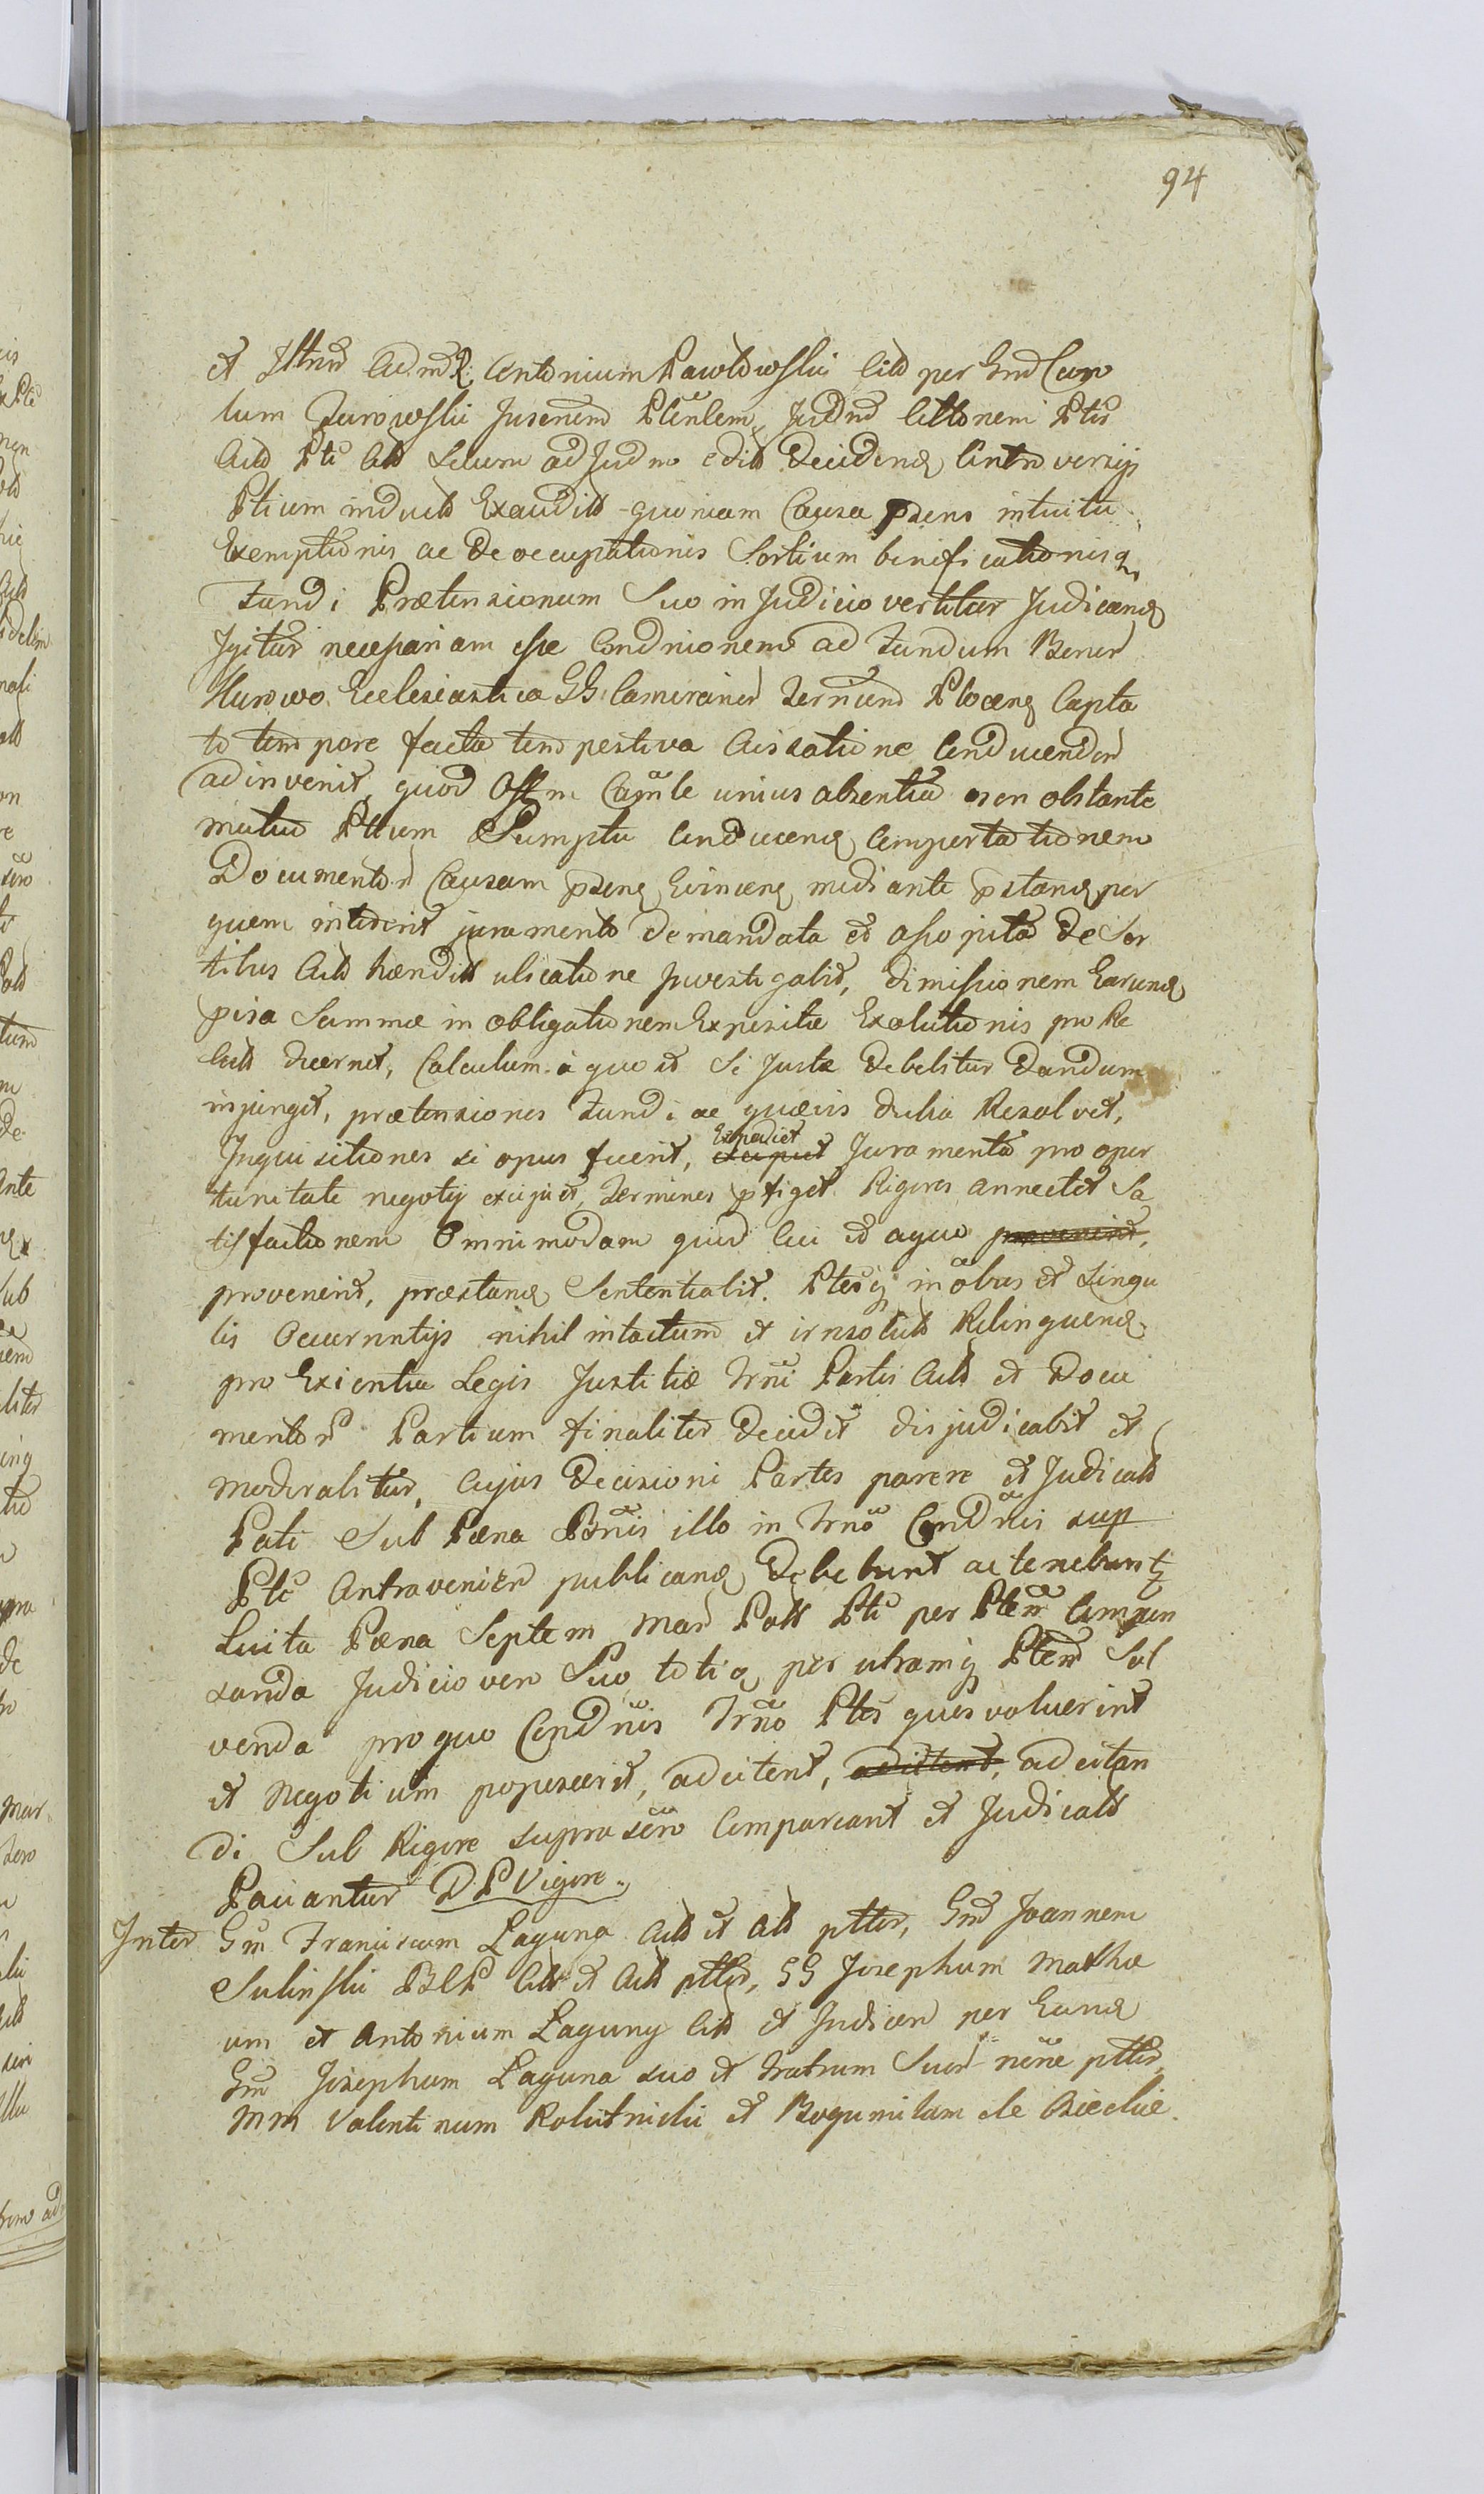 94
et Illrm Adm R. Antonium Pawłowski Citt per Gnd Caro
lum Zurowski Juvenem Pltenlem, Judnd Cittonem Ptis
Actt Pti Citt Secum ad Judm editt Decidend Controversijs
Ptium inductt Exauditt quoniam Causa pdens intuitu
Exemptionis ac Deoccupationis Sortium benificationisq
Fundi Prætensionum Suo in Judicio vertitur Judicand
Igitur necessariam esse Condnionem ad Fundum Bonor
Ecclesiastica GG Camerarior Terrium Plocens Capta
to tempore facta tempestiva Cissatione Conducendor
adinvenit, quod Offm Camle unius absentia non obstante
mutuo Ptium Sumptu Conducend Comportationem
Documentor Causam pdend Evincend mediante pstand per
quem intererit juramento demandata et assopita de Sor
tibus Actt hændit ubicatione Investigabit, dimissionem Earund
pisa Summæ in obligationem Expositæ Exolutionis pro Re
Citt decernet, Calculum a quo et Si Juste debebitur Dandum
injunget, prætensiones Fundi ac quævis dubia Resolvet,
Inquisitiones si opus fuerit, Expediet Juramenta pro opor
tunitate negotij excipiet, Terminos pfiget Rigores annectet Sa
tisfactionem Omnimodam quid Cui et a quo provenerit,
provenerit, præstand Sententiabit. Ptesq in obus et Singu
lis Occurrntijs nihil intactum et irresolutt Relinquend
pro Exientia Legis Justitiæ Trni Partis Actt et Docu
mentor Partium finaliter Decidet disjudicabit et
moderabitur, Cujus Decisioni Partes parere et Judicatt
Pati Sub Pæna Bnnis illo in Trno Condnis sup
Pte Contravenien publicand Debebunt ac tenebunt
Luita Pæna Septem Mar Poll Pti per Ptem Compen
sanda Judicio vero Suo toties per utramq Ptem Sol
venda pro quo Condnis Trno Ptes quos voluerint
et Negotium poposcerit, adcitent, adcitent, adcitan
di Sub Rigore supra scro Compareant et Judicatt
Paciantur D P Vigore.
Inter Gm Franciscum Łaguna Actt et Citt pltter, Gnd Joannem
Sulinski BCP Citt et Actt plltr, GG Josephum Mathæ
um et Antonium Łaguny Citt et Judicen per Eund
Gm Josephum Łaguna suo et Fratrum Suor nene plltr,
MM Valentinum Robitnicki et Bogumilam de Bieckie